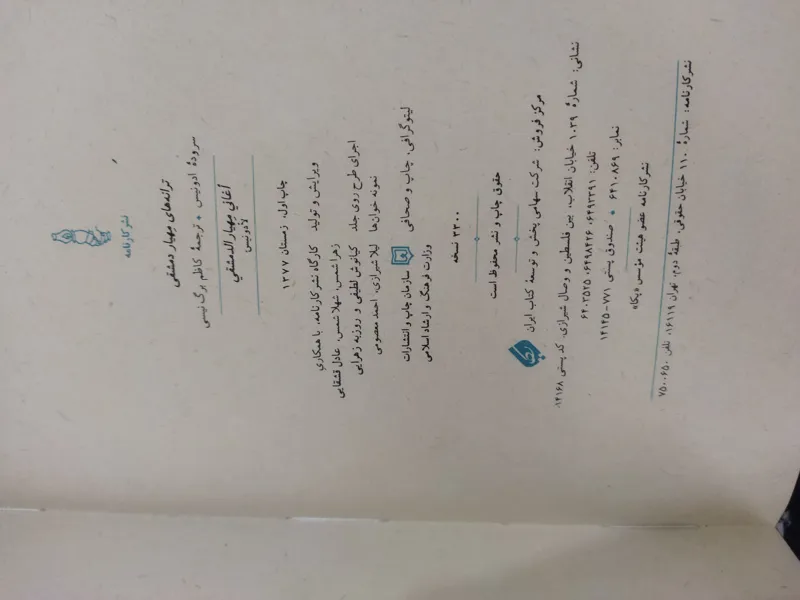 نشر کارنامه
ترانه‌های مهیار دمشقی
سرودهٔ ادونیس • ترجمهٔ کاظم برگ نیسی
أغاني مهيار الدمشقي
لأدونيس
چاپ اول، زمستان ۱۳۷۷
ویرایش و تولید کارگاه نشر کارنامه، با همکاری
زهرا شمس، شهلا شمس، عادل قشقایی
اجرای طرح روی جلد کیانوش لطیفی و روزبه زهرایی
نمونه خوان‌ها لیلا شیرازی، احمد معصومی
لیتوگرافی، چاپ و صحافی سازمان چاپ و انتشارات
وزارت فرهنگ و ارشاد اسلامی
۳۳۰۰ نسخه
حقوق چاپ و نشر محفوظ است
مرکز فروش: شرکت سهامی پخش و توسعهٔ کتاب ایران
نشانی: شمارهٔ ۱۰۳۹ خیابان انقلاب، بین فلسطین و وصال شیرازی، کد پستی ۱۴۱۶۸،
تلفن: ۶۴۹۲۳۹۱، ۶۴۹۸۴۲۶، ۶۴۰۳۵۲۵
نمابر: ۶۴۱۰۸۶۹ • صندوق پستی ۷۷۱-۱۴۱۴۵
نشر کارنامه عضو هیئت مؤسس «پکا»
نشر کارنامه: شمارهٔ ۱۱۰ خیابان حقوقی، طبقهٔ دوم، تهران ۱۶۱۱۹، تلفن ۷۵۰۰۶۵۰